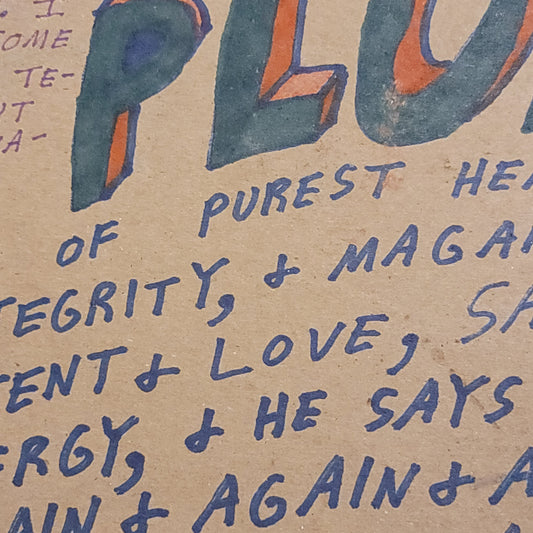 I
SOME
TE-
UT
A-
PLU
OF PUREST HEA
TEGRITY, & MAGAN
TENT & LOVE, SA
ERGY, & HE SAYS
AIN & AGAIN & A